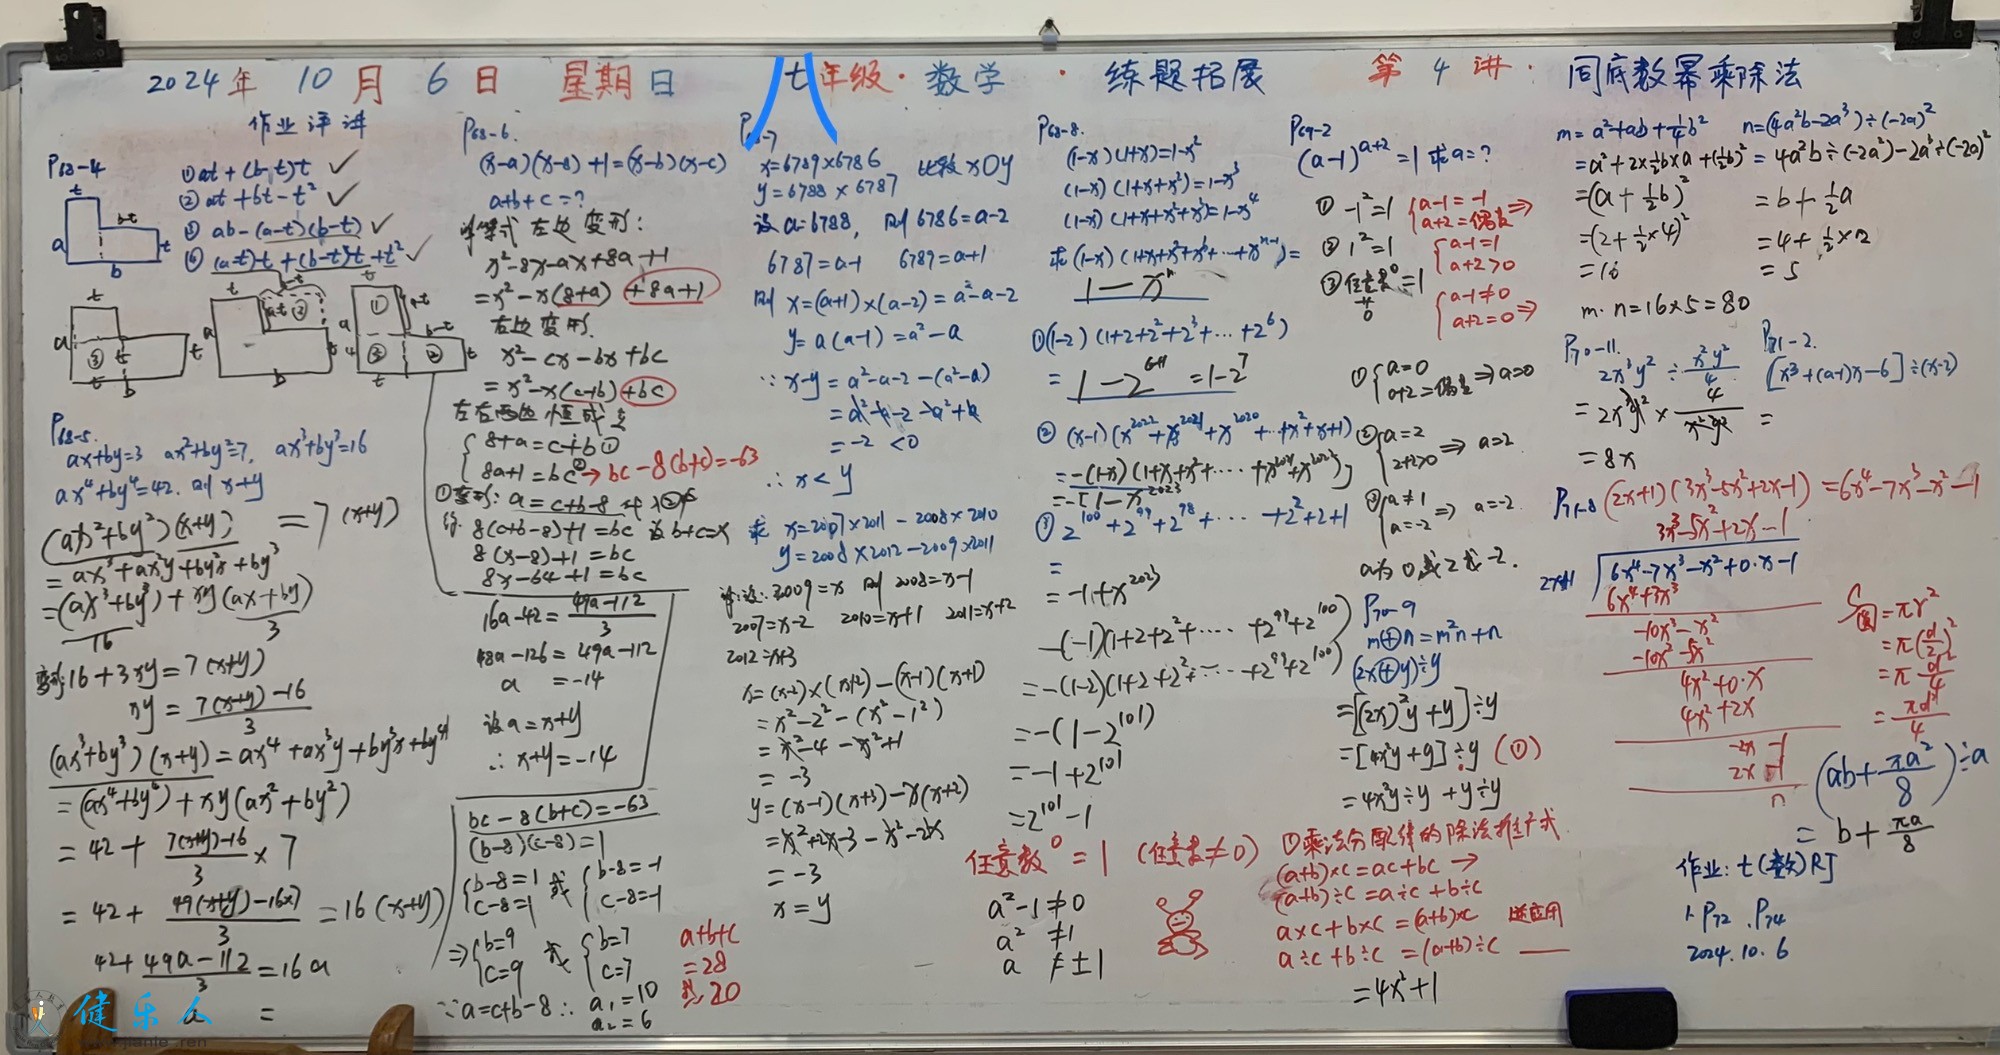 2024年 10月 6日 星期日 八年级·数学 · 练题拓展 第 4 讲· 同底数幂乘除法
作业评讲
P68-4
①at+(b-t)t ✓
②at+bt-t² ✓
③ab-(a-t)(b-t) ✓
④(a-t)t+(b-t)t+t² ✓
P68-5.
ax+by=3 ax²+by²=7, ax³+by³=16
ax⁴+by⁴=42. 则 x+y
(ax²+by²)(x+y) =7(x+y)
=ax³+ax²y+by²x+by³
=(ax³+by³)+xy(ax+by)
16 3
变形:16+3xy=7(x+y)
xy=7(x+y)-16/3
(ax³+by³)(x+y)=ax⁴+ax³y+by³x+by⁴
=(ax⁴+by⁴)+xy(ax²+by²)
=42+7(x+y)-16/3×7
=42+49(x+y)-16×7/3=16(x+y)
42+49a-112/3=16a
a =
P68-6.
(x-a)(x-8)+1=(x-b)(x-c)
a+b+c=?
解:等式左边变形:
x²-8x-ax+8a+1
=x²-x(8+a)+8a+1
右边变形.
x²-cx-bx+bc
=x²-x(c+b)+bc
左右两边恒成立
8+a=c+b①
8a+1=bc②→bc-8(b+c)=-63
①变形:a=c+b-8代入②
得 8(c+b-8)+1=bc 设b+c=x
8(x-8)+1=bc
8x-64+1=bc
16a-42=49a-112/3
48a-126=49a-112
a =-14
设a=x+y
∴x+y=-14
bc-8(b+c)=-63
(b-8)(c-8)=1
b-8=1 或 b-8=-1
c-8=1 c-8=-1
⇒ b=9 或 b=7
c=9 c=7
∵a=c+b-8 ∴ a₁=10
a₂=6
a+b+c
=28
或20
P68-7
x=6789×6786 比较x○y
y=6788×6787
设a=6788, 则6786=a-2
6787=a-1 6789=a+1
则x=(a+1)×(a-2)=a²-a-2
y=a(a-1)=a²-a
∵x-y=a²-a-2-(a²-a)
=a²-a-2-a²+a
=-2<0
∴x<y
求 x=2007×2011-2008×2010
y=2008×2012-2009×2011
解:设:2009=x 则2008=x-1
2007=x-2 2010=x+1 2011=x+2
2012=x+3
x=(x-2)×(x+2)-(x-1)(x+1)
=x²-2²-(x²-1²)
=x²-4-x²+1
=-3
y=(x-1)(x+3)-x(x+2)
=x²+2x-3-x²-2x
=-3
x=y
P68-8.
(1-x)(1+x)=1-x²
(1-x)(1+x+x²)=1-x³
(1-x)(1+x+x²+x³)=1-x⁴
求(1-x)(1+x+x²+x³+…+xⁿ⁻¹)=
1-xⁿ
①(1-2)(1+2+2²+2³+…+2⁶)
=1-2⁶⁺¹=1-2⁷
②(x-1)(x²⁰²²+x²⁰²¹+x²⁰²⁰+…+x²+x+1)
=-(1-x)(1+x+x²+……+x²⁰²¹+x²⁰²²)
=-[1-x²⁰²³
③2¹⁰⁰+2⁹⁹+2⁹⁸+……+2²+2+1
=
=-1+x²⁰²³
-(-1)(1+2+2²+……+2⁹⁹+2¹⁰⁰)
=-(1-2)(1+2+2²+……+2⁹⁹+2¹⁰⁰)
=-(1-2¹⁰¹)
=-1+2¹⁰¹
=2¹⁰¹-1
任意数⁰=1 (任意数≠0)
a²-1≠0
a² ≠1
a ≠±1
P69-2
(a-1)ᵃ⁺²=1 求a=?
①-1²=1 a-1=-1
a+2=偶数⇒
②1²=1 a-1=1
a+2>0
③任意数⁰=1 a-1≠0
≠0 a+2=0⇒
① a=0
a+2=偶数⇒a=0
② a=2
2+2>0⇒a=2
③ a≠1
a=-2⇒a=-2
a为0或2或-2.
P70-9
m⊕n=m²n+n
(2x⊕y)÷y
=[(2x)²y+y]÷y
=[4x²y+y]÷y (①)
=4x²y÷y+y÷y
①乘法分配律的除法推广式
(a+b)×c=ac+bc→
(a+b)÷c=a÷c+b÷c
a×c+b×c=(a+b)×c 逆应用
a÷c+b÷c=(a+b)÷c
=4x²+1
m=a²+ab+¼b² n=(4a²b-2a³)÷(-2a)²
=a²+2×½b×a+(½b)² =4a²b÷(-2a)²-2a³÷(-2a)²
=(a+½b)² =b+½a
=(2+½×4)² =4+½×2
=16 =5
m·n=16×5=80
P70-11.
2x³y²÷x²y²/4
=2x³y²×4/x²y²
=8x
P71-2.
[x³+(a-1)x-6]÷(x-2)
=
P71-8 (2x+1)(3x³-5x²+2x-1)=6x⁴-7x³-x²-1
3x³-5x²+2x-1
2x+1 6x⁴-7x³-x²+0·x-1
6x⁴+3x³
-10x³-x²
-10x³-5x²
4x²+0·x
4x²+2x
-2x-1
-2x-1
0
S圆=πr²
=π(d/2)²
=π·d²/4
=πd²/4
(ab+πa²/8)÷a
=b+πa/8
作业:七(数)RJ
1·P72 .P74
2024.10.6
健乐人